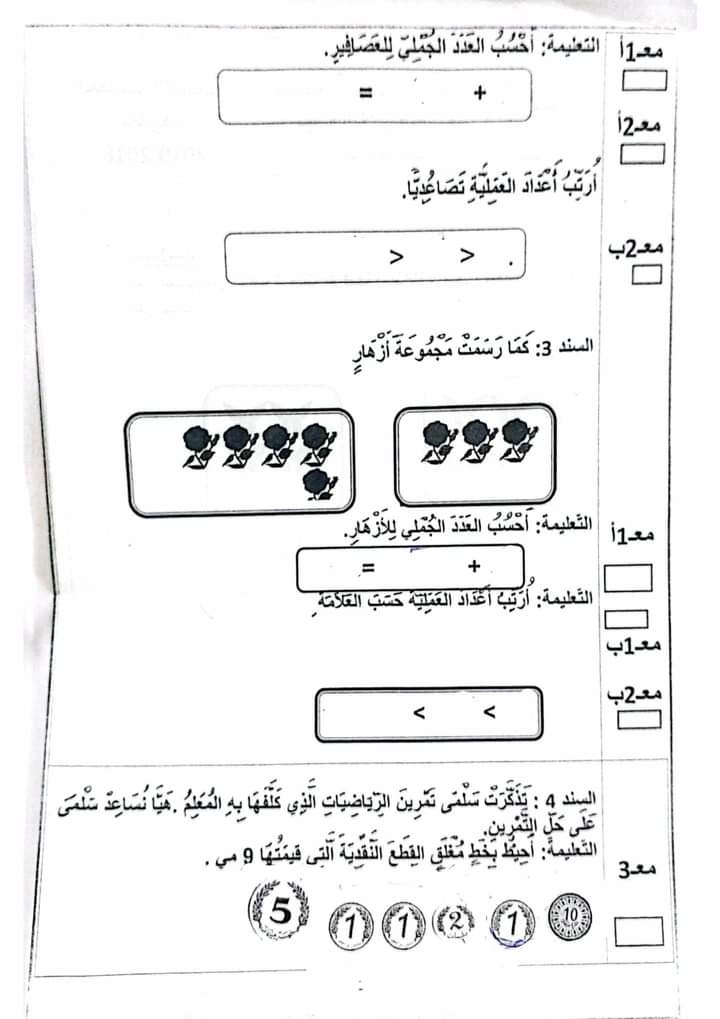 معـ1أ
التعليمة: أَحْسُبُ العَدَدَ الجُمْلِيّ لِلعَصَافِيرِ.
+ =
معـ2أ
أُرَتِّبُ أَعْدَادَ العَمَلِيَّةِ تَصَاعُدِيًّا.
معـ2ب
. > >
السند 3: كَمَا رَسَمَتْ مَجْمُوعَةَ أَزْهَارٍ
معـ1أ
التَّعليمة: أَحْسُبُ العَدَدَ الجُمْلِي لِلأَزْهَارِ.
+ =
التَّعليمة: أُرَتِّبُ أَعْدَادَ العَمَلِيَّةَ حَسَبَ العَلَامَةِ
معـ1ب
معـ2ب
< <
السند 4 : تَذَكَّرَتْ سَلْمَى تَمْرِينَ الرِّيَاضِيَاتِ الَّذِي كَلَّفَهَا بِهِ المُعَلِّمُ .هَيَّا نُسَاعِدْ سَلْمَى
عَلَى حَلِّ التَّمْرِينِ.
التَّعليمة: أُحِيطُ بِخَطٍ مُغْلَقٍ القِطَعَ النَّقْدِيَّةَ الَّتِي قِيمَتُهَا 9 مي .
معـ3
10 1 2 1 1 5